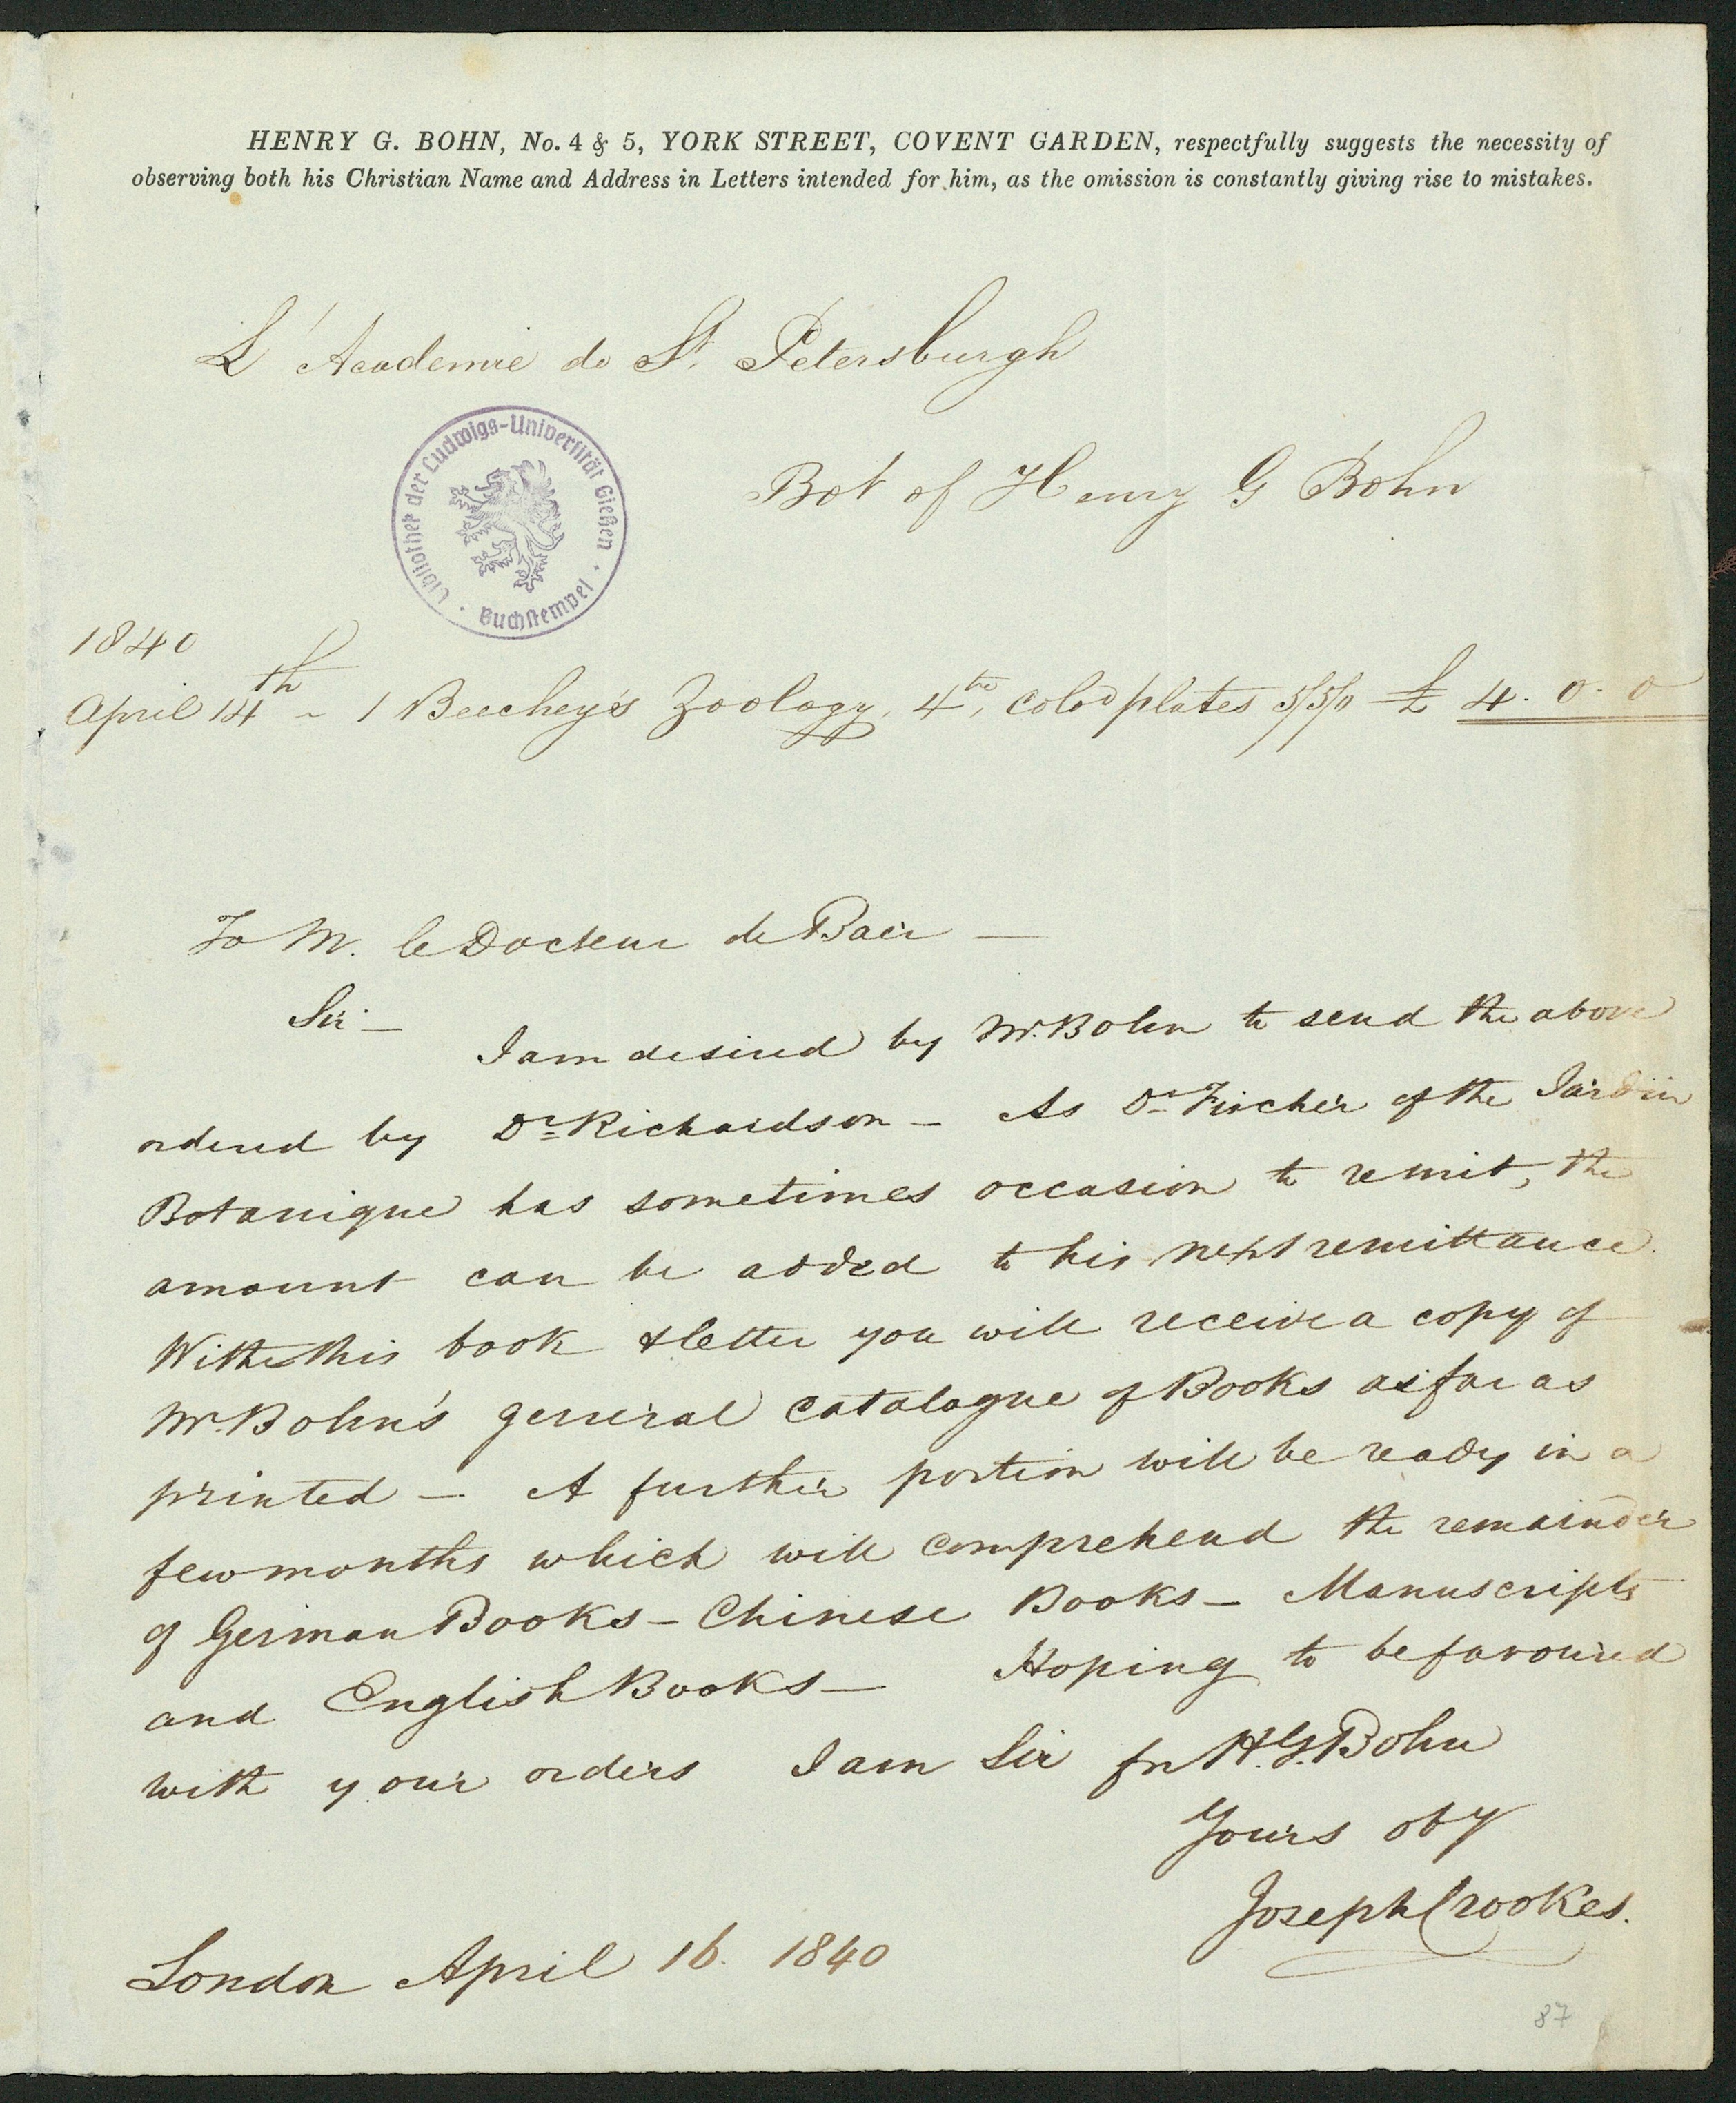 HENRY G. BOHN, No. 4 & 5, YORK STREET, COVENT GARDEN, respectfully suggests the necessity of
observing both his Christian Name and Address in Letters intended for him, as the omission is constantly giving rise to mistakes.
L'Academie de St. Petersburgh
Bibliothek der Ludwigs-Universität Gießen · Buchstempel ·
Bot of Henry G Bohn
1840
April 14th ~ 1 Beechey's Zoology, 4to, colod plates 5/5/0 £ 4. 0. 0
To M. le Docteur de Baer —
Sir —
I am desired by Mr. Bohn to send the above
ordered by Dr Richardson — As Dr Fischer of the Jardin
Botanique has sometimes occasion to remit, the
amount can be added to his next remittance
With this book & letter you will receive a copy of
Mr. Bohn's general catalogue of Books as far as
printed — A further portion will be ready in a
few months which will comprehend the remainder
of German Books — Chinese Books — Manuscripts
and English Books — Hoping to be favoured
with your orders I am Sir for H. G. Bohn
Yours oby
Joseph Crookes.
London April 16. 1840
87